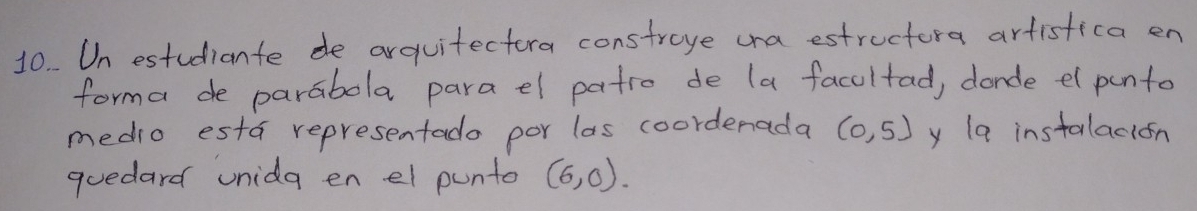 10.- Un estudiante de arquitectura construye una estructura artística en
forma de parábola para el patio de la facultad, donde el punto
medio está representado por las coordenada (0,5) y la instalación
quedará unida en el punto (6,0).